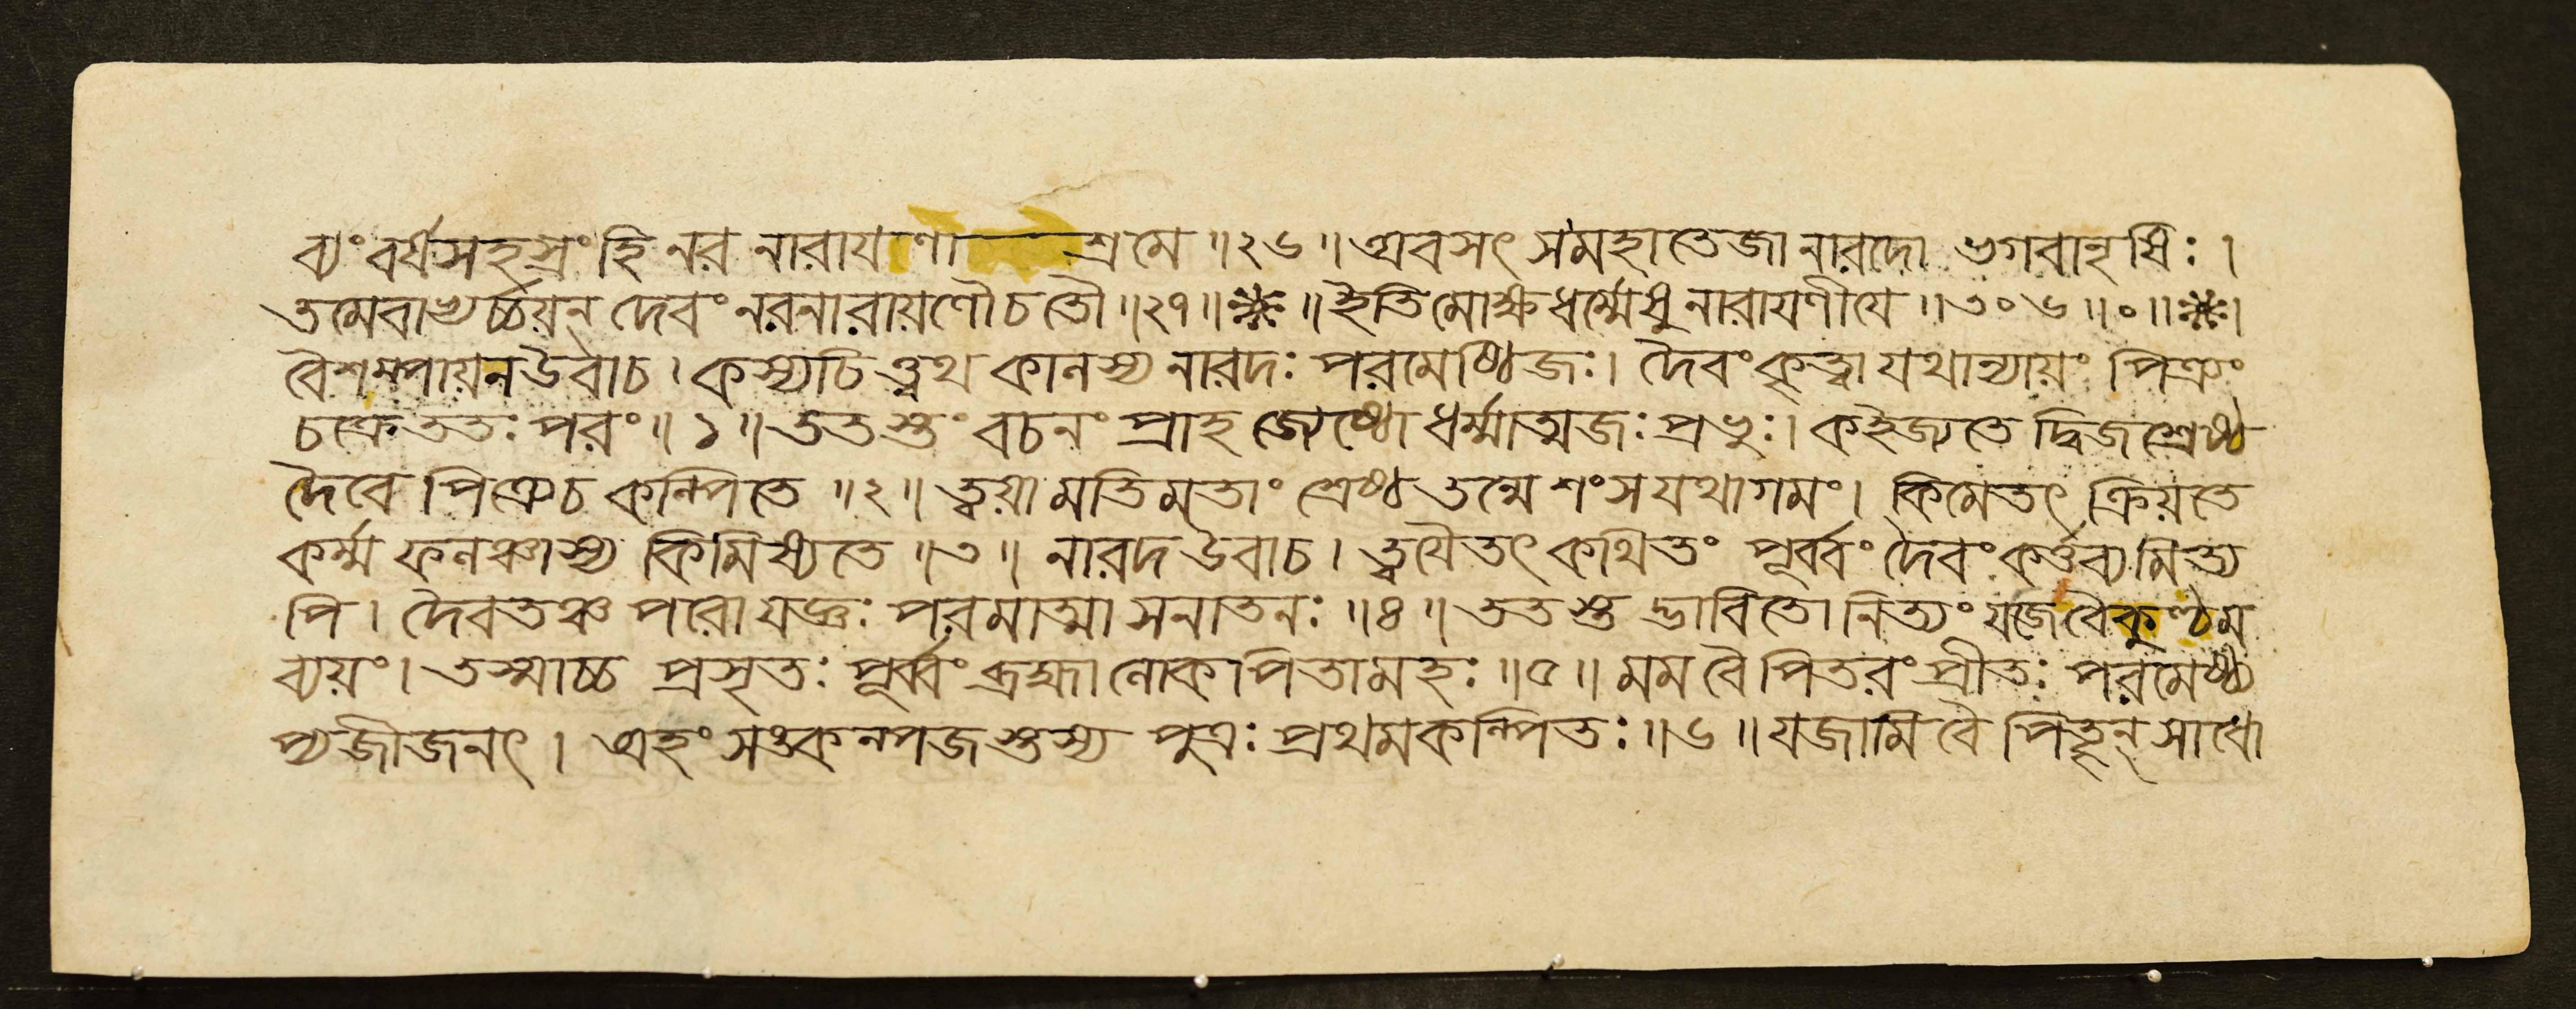 ব্যং বর্ষসহস্রং হি নর নারায়ণা—শ্রমে ॥ ২৬ ॥ অবসৎ সমহাতেজা নারদো ভগবানৃষিঃ ।
তমেবাভ্যর্চ্চয়ন্ দেবং নরনারায়ণৌ চ তৌ ॥ ২৭ ॥ ❈ ॥ ইতি মোক্ষধর্ম্মেষু নারায়ণীয়ে ॥ ৩০৬ ॥ ০ ॥ ❈ ।
বৈশম্পায়ন উবাচ । কস্যচিত্ত্বথ কালস্য নারদঃ পরমেষ্ঠিজঃ । দৈবং কৃত্বা যথান্যায়ং পিত্র্যং
চক্রে ততঃ পরং ॥ ১ ॥ ততস্তং বচনং প্রাহ জ্যেষ্ঠো ধর্ম্মাত্মজঃ প্রভুঃ । ক ইজ্যতে দ্বিজশ্রেষ্ঠ
দৈবে পিত্র্যে চ কল্পিতে ॥ ২ ॥ ত্বয়া মতিমতাং শ্রেষ্ঠ তন্মে শংস যথাগমং । কিমেতৎ ক্রিয়তে
কর্ম্ম ফলঞ্চাস্য কিমিষ্যতে ॥ ৩ ॥ নারদ উবাচ । ত্বয়ৈতৎ কথিতং পূর্ব্বং দৈবং কর্ত্তব্যমিত্য
পি । দৈবতঞ্চ পরো যজ্ঞঃ পরমাত্মা সনাতনঃ ॥ ৪ ॥ ততস্তদ্ভাবিতো নিত্যং যজে বৈকুণ্ঠম
ব্যয়ং । তস্মাচ্চ প্রসৃতঃ পূর্ব্বং ব্রহ্মা লোকপিতামহঃ ॥ ৫ ॥ মম বৈ পিতরং প্রীতঃ পরমেষ্ঠ্য
প্যজীজনৎ । অহং সঙ্কল্পজস্তস্য পুত্রঃ প্রথমকল্পিতঃ ॥ ৬ ॥ যজামি বৈ পিতৄন্ সাধো